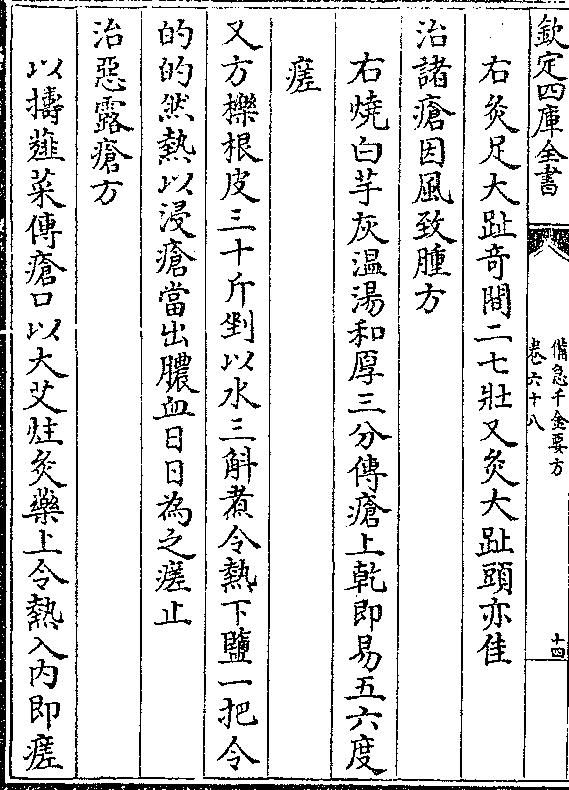 欽定四庫全書
備急千金要方
卷六十八
十四
右灸足大趾奇間二七壯又灸大趾頭亦佳
治諸瘡因風致腫方
右燒白芋灰温湯和厚三分傅瘡上乾即易五六度
瘥
又方櫟根皮三十斤剉以水三斛煮令熱下鹽一把令
的的然熱以浸瘡當出膿血日日為之瘥止
治惡露瘡方
以擣薤菜傅瘡口以大艾炷灸藥上令熱入内即瘥